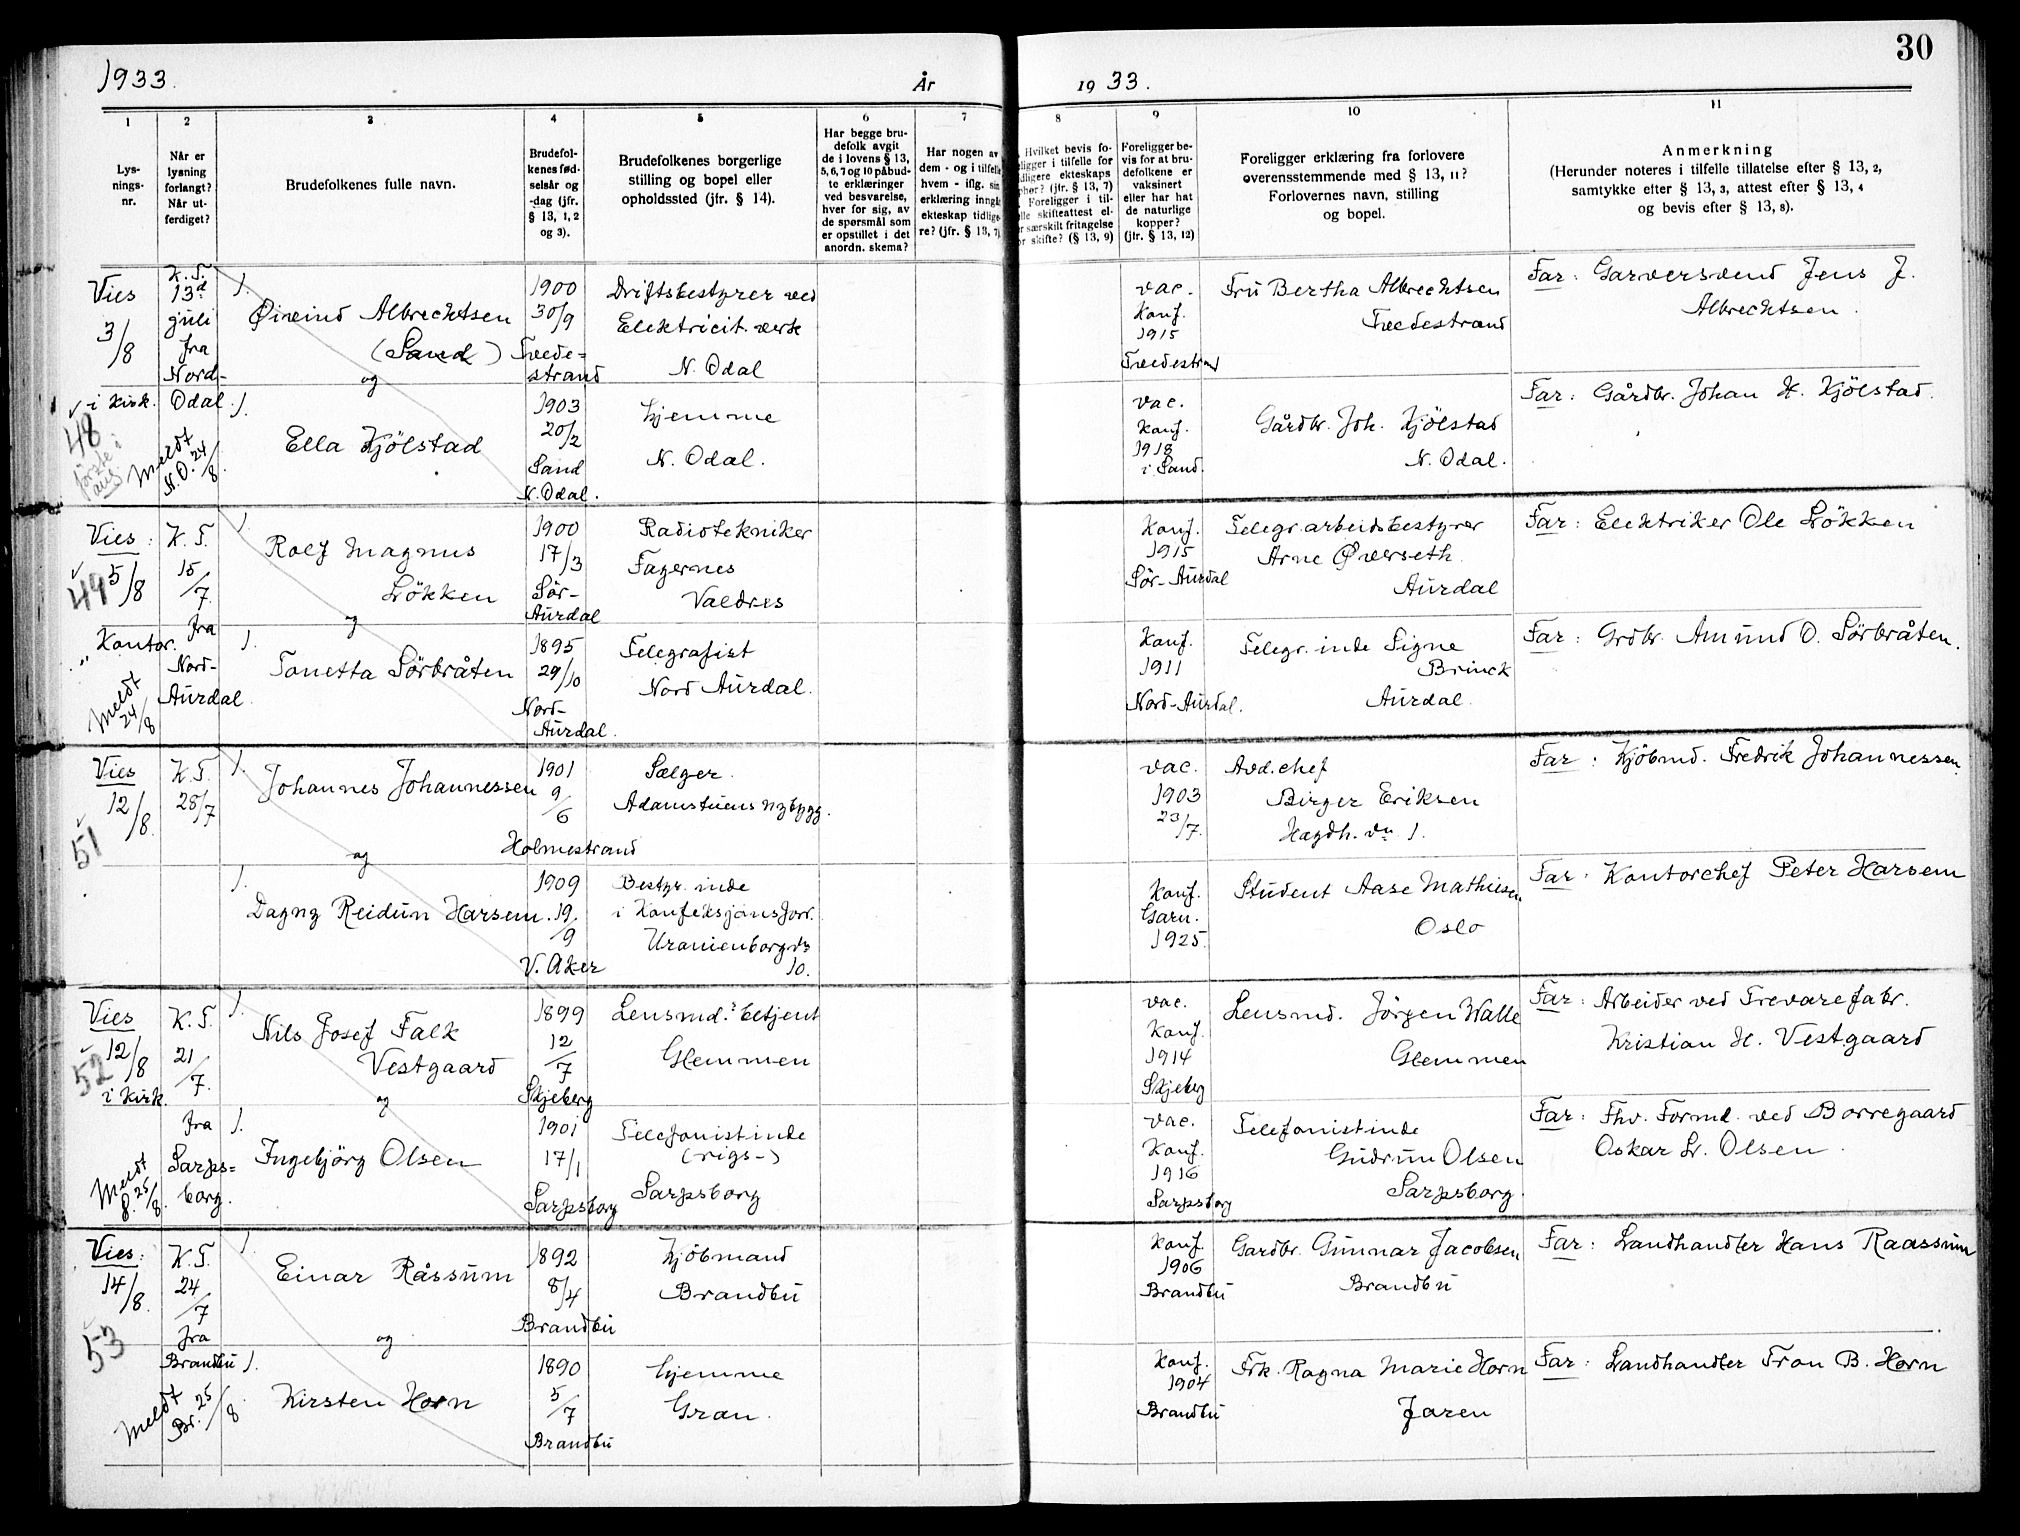 30
1933.
År
19 33.
1
2
3
4
5
6
7
8
9
10
11
Lys-
nings-
nr.
Når er
lysning
forlangt?
Når ut-
ferdiget?
Brudefolkenes fulle navn.
Brudefol-
kenes fød-
selsår og
-dag (jfr.
§ 13, 1, 2
og 3).
Brudefolkenes borgerlige
stilling og bopel eller
opholdssted (jfr. § 14).
Har begge bru-
defolk avgit
de i lovens § 13,
5, 6, 7 og 10 påbud-
te erklæringer
ved besvarelse,
hver for sig, av
de spørsmål som
er opstillet i det
anordn. skema?
Har nogen av
dem - og i tilfelle
hvem - iflg. sin
erklæring inngåt
ekteskap tidlige-
re? (jfr. § 13, 7)
Hvilket bevis fo-
religger i tilfelle for
tidligere ekteskaps
ophør? (jfr. § 13, 7)
Foreligger i til-
felle skifteattest el-
ler særskilt fritagelse
for skifte? (§ 13, 9)
Foreligger be-
vis for at bru-
defolkene er
vaksinert
eller har hat
de naturlige
kopper?
(jfr. § 13, 12)
Foreligger erklæring fra forlovere
overensstemmende med § 13, 11?
Forlovernes navn, stilling
og bopel.
Anmerkning
(Herunder noteres i tilfelle tillatelse efter § 13, 2,
samtykke efter § 13, 3, attest efter § 13, 4
og bevis efter § 13, 8).
Vies
3/8
i Kirk.
48
K. T.
13d
juli
fra
Nord-
Odal.
Meldt
N.O. 24/8.
1.
Øivind Albrechtsen
(Sand)
og
1900
30/9
Tvede-
strand
Driftsbestyrer ved
Elektricit. verk
N. Odal
vac.
Konf.
1915
Tvedestrand
Fru Bertha Albrechtsen
Tvedestrand
Far: Garversvend Jens J.
Albrechtsen.
1.
Ella Kjölstad
1903
20/2
Sand
N. Odal.
hjemme
N. Odal.
vac.
Konf.
1918
i Sand.
Gårdbr. Joh. Kjölstad
N. Odal.
Far: Gårdbr. Johan H. Kjölstad.
Vies:
5/8
49
" Kontor.
Meldt
24/8
K. T.
15/7.
fra
Nord-
Aurdal.
1.
Rolf Magnus
Lökken
og
1900
17/3
Sør-
Aurdal
Radiotekniker
Fagernes
Valdres
Konf.
1915
Sør-Aurdal
Telegr. arbeidsbestyrer
Arne Øverseth.
Aurdal
Far: Elektriker Ole Lökken
1.
Tonetta Sörbråten
1895
29/10
Nord-
Aurdal.
Telegrafist
Nord Aurdal.
Konf.
1911
Nord-Aurdal.
Telegr. inde Signe
Brinck
Aurdal.
Far: Grdbr. Amund O. Sörbråten.
Vies
12/8.
51
K. T.
28/7
1.
Johannes Johannessen
og
1901
9/6
Holmestrand
Sælger.
Adamstuens nybygg.
vac.
1903
23/7.
Avd. chef
Birger Eriksen
Hagdh. vn 1.
Far: Kjöbmd. Fredrik Johannessen.
1.
Dagny Reidun Harsem.
1909
19/9
V. Aker
Bestyr. inde
i Konfeksjonsforr.
Uranienborgvn
10.
Konf.
Garn.
1925.
Student Aase Mathiesen
Oslo
Far: Kontorchef Peter Harsem
Vies
12/8
52
i Kirk.
Meldt
8. 25/8.
K. T.
21/7.
fra
Sarps-
borg.
1.
Nils Josef Falk
Vestgaard
og
1899
12/7
Skjeberg
Lensmd.s betjent
Glemmen
vac.
Konf.
1914
Skjeberg
Lensmd. Jörgen Walle
Glemmen
Far: Arbeider ved Trevarefabr.
Kristian H. Vestgaard
1.
Ingebjörg Olsen
1901
17/1
Sarpsborg
Telefonistinde
(rigs-)
Sarpsborg
vac.
Konf.
1916
Sarpsborg
Telefonistinde
Gudrun Olsen
Sarpsborg.
Far: Fhv. Formd. ved Borregaard
Oskar L. Olsen.
Vies:
14/8.
53
K. T.
24/7
fra
Brandbu
Meldt
Br. 25/8.
1.
Einar Råssum
og
1892
8/4
Brandbu
Kjöbmand
Brandbu
Konf.
1906
Brandbu
Gardbr. Gunnar Jacobsen
Brandbu
Far: Landhandler Hans Raassum
1.
Kirsten Horn
1890
5/7
Brandbu
hjemme
Gran.
Konf.
1904
Brandbu
Frk. Ragna Marie Horn
Jaren
Far: Landhandler Tron B. Horn